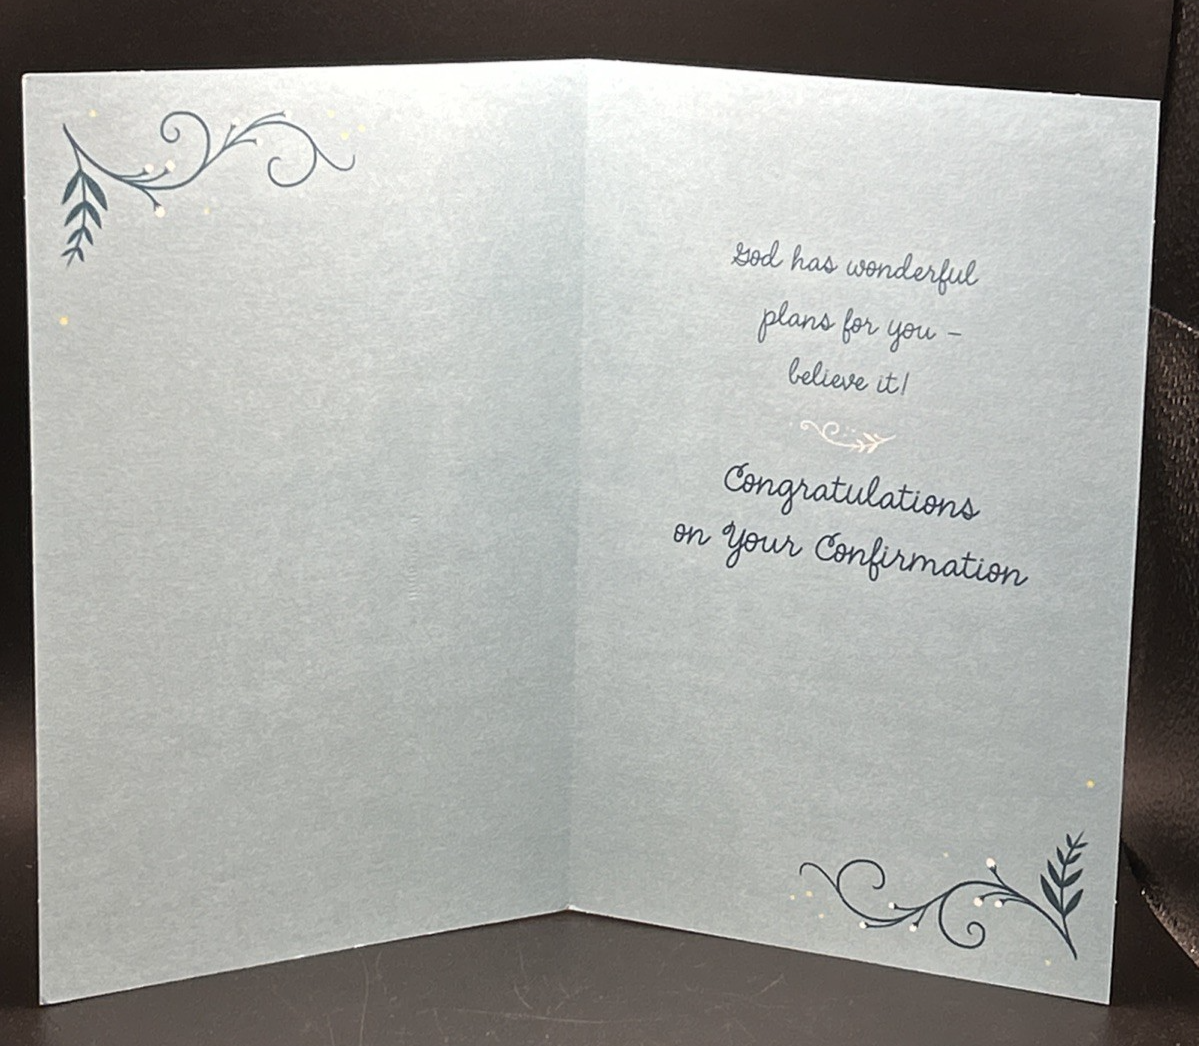 God has wonderful
plans for you –
believe it!
Congratulations
on Your Confirmation